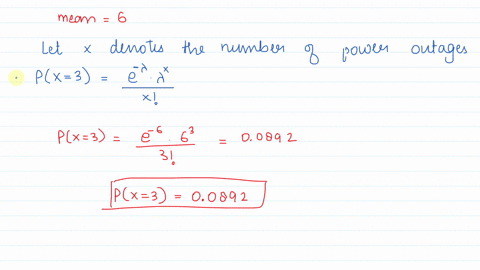 mean = 6
Let x denotes the number of power outages
P(x=3) = e^-λ · λ^x / x!
P(x=3) = e^-6 · 6^3 / 3! = 0.0892
P(x=3) = 0.0892